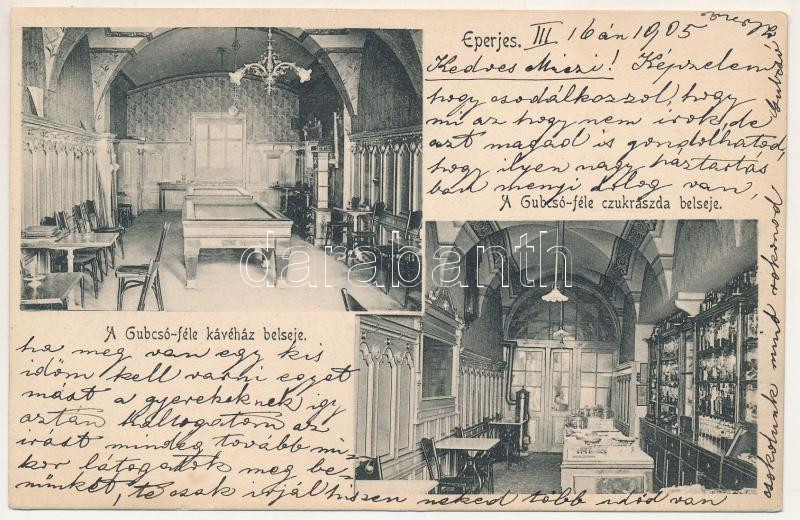 Eperjes. III 16án 1905
Kedves Miczi! Képzelem
hogy csodálkozzol, hogy
mi az hogy nem irok, de
azt magad is gondolhatod,
hogy ilyen nagy háztartás
ban menyi dolog van,
A Gubcsó-féle czukrászda belseje.
darabanth.com
A Gubcsó-féle kávéház belseje.
ha meg van egy kis
időm kell varni egyet
mást a gyerekeknek igy
aztán halogatom az
irást mindég tovább mi-
kor látogatok meg be-
nünket, te csak irjál hiszen neked több időd van
csokolunk mint rokonod